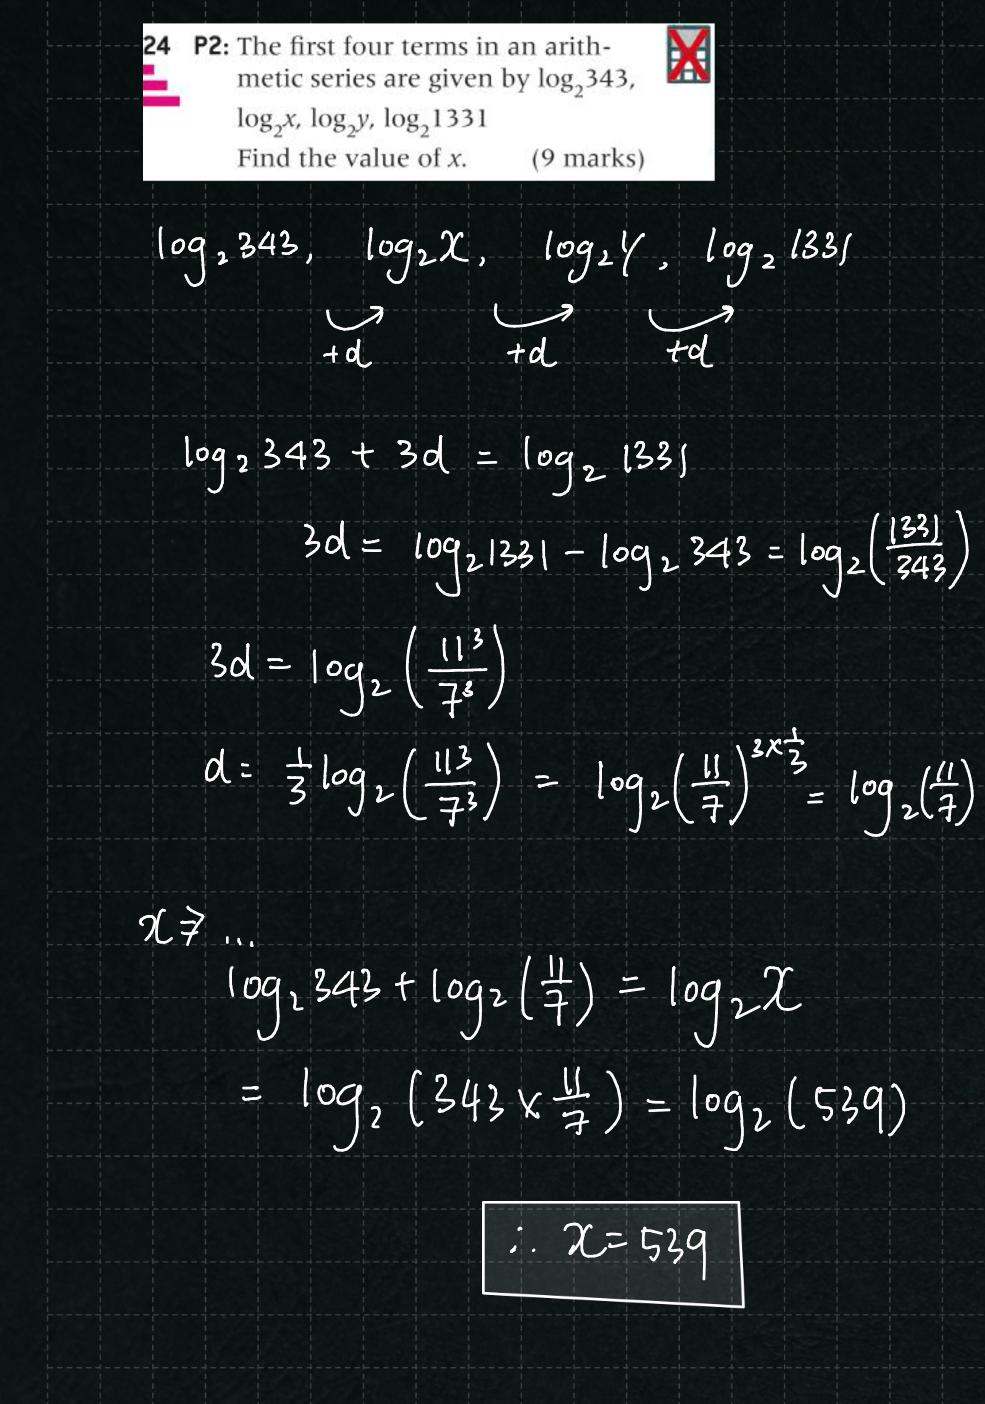 24 P2: The first four terms in an arith-
metic series are given by log₂343,
log₂x, log₂y, log₂1331
Find the value of x. (9 marks)
log₂343, log₂x, log₂y, log₂1331
+d +d +d
log₂343 + 3d = log₂1331
3d = log₂1331 − log₂343 = log₂(1331/343)
3d = log₂(11³/7³)
d = 1/3 log₂(11³/7³) = log₂(11/7)^(3×1/3) = log₂(11/7)
x ⇒ ...
log₂343 + log₂(11/7) = log₂x
= log₂(343 × 11/7) = log₂(539)
∴ x = 539